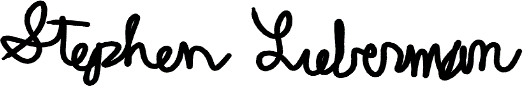 Stephen Lieberman